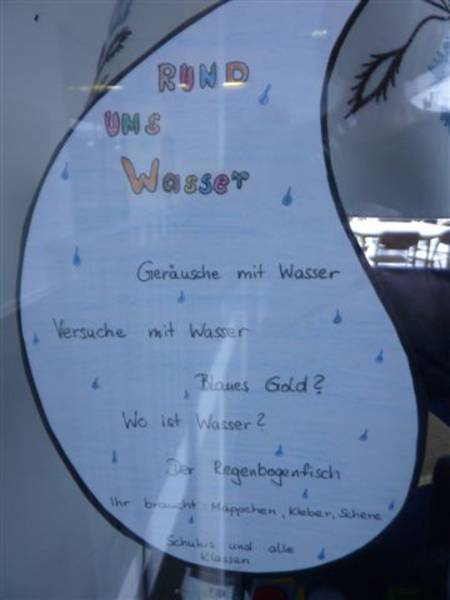 RUND
UMS
Wasser
Geräusche mit Wasser
Versuche mit Wasser
Blaues Gold?
Wo ist Wasser?
Der Regenbogenfisch
Ihr braucht: Mäppchen, Kleber, Schere
Schukis und alle
Klassen